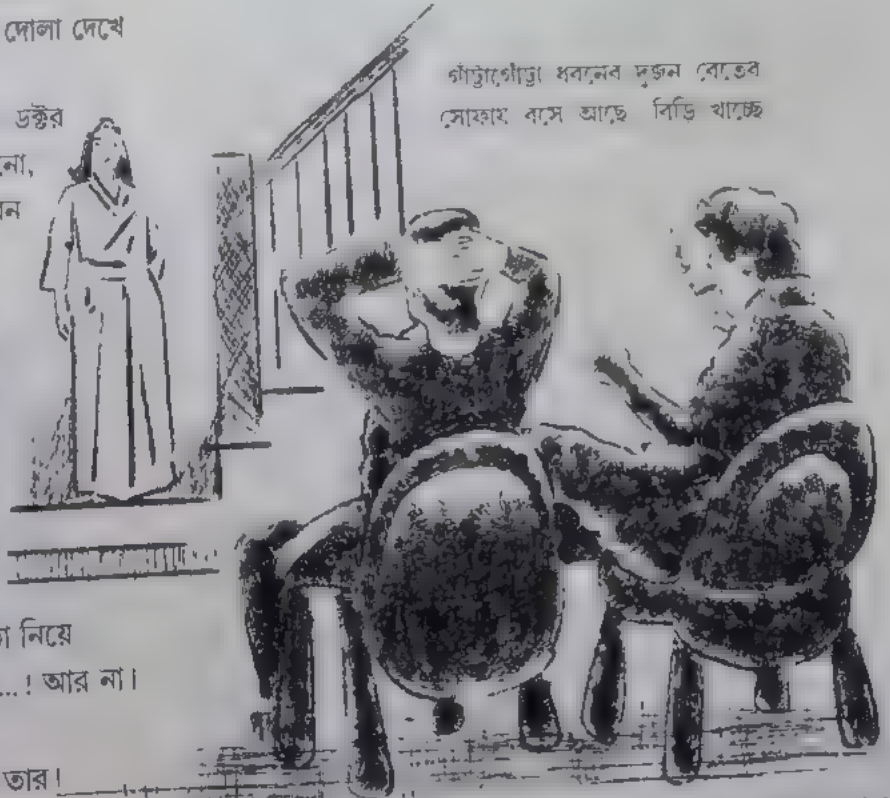 দোলা দেখে
ডক্টর
নো,
ন
গাঁট্টাগোঁট্টা ধরনের দুজন বেতের
সোফায় বসে আছে বিড়ি খাচ্ছে
া নিয়ে
...! আর না।
তার।